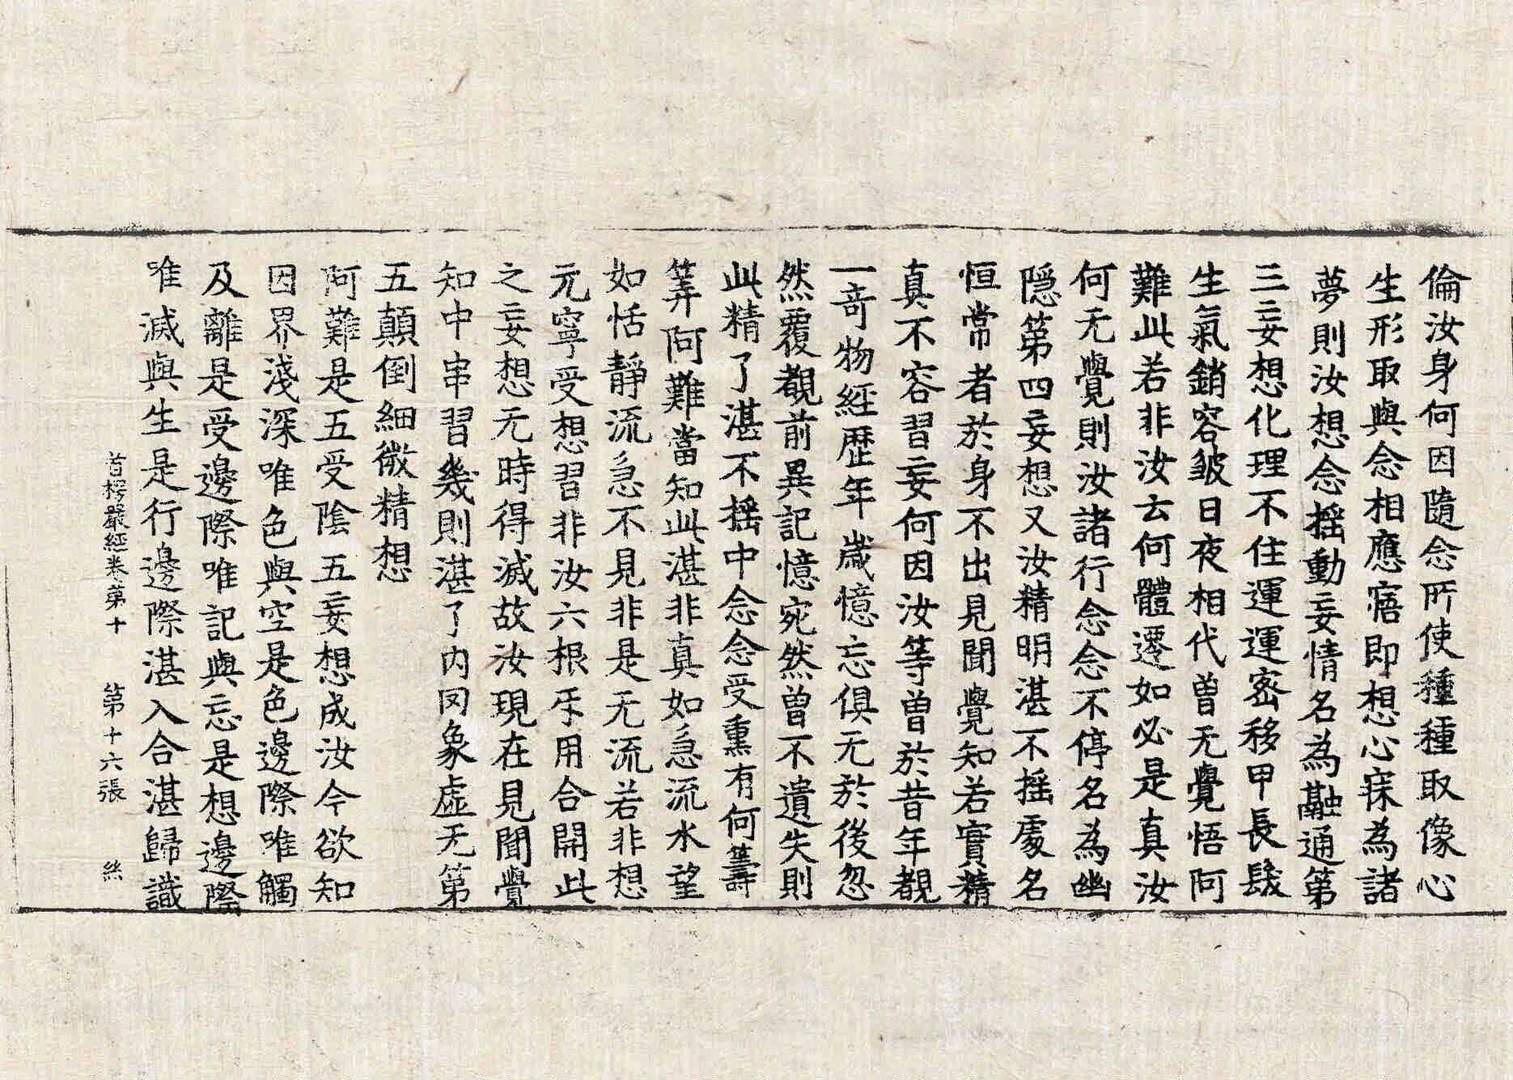 倫汝身何因隨念所使種種取像心
生形取與念相應寤即想心寐為諸
夢則汝想念搖動妄情名為融通第
三妄想化理不住運運密移甲長髮
生氣銷容皺日夜相代曾无覺悟阿
難此若非汝云何體遷如必是真汝
何无覺則汝諸行念念不停名為幽
隱第四妄想又汝精明湛不搖處名
恒常者於身不出見聞覺知若實精
真不容習妄何因汝等曾於昔年覩
一奇物經歷年歲憶忘俱无於後忽
然覆覩前異記憶宛然曾不遺失則
此精了湛不搖中念念受熏有何籌
筭阿難當知此湛非真如急流水望
如恬靜流急不見非是无流若非想
元寧受想習非汝六根㸦用合開此
之妄想无時得滅故汝現在見聞覺
知中串習幾則湛了内罔象虛无第
五顛倒細微精想
阿難是五受陰五妄想成汝今欲知
因界淺深唯色與空是色邊際唯觸
及離是受邊際唯記與忘是想邊際
唯滅與生是行邊際湛入合湛歸識
首楞嚴經卷第十 第十六張 絲